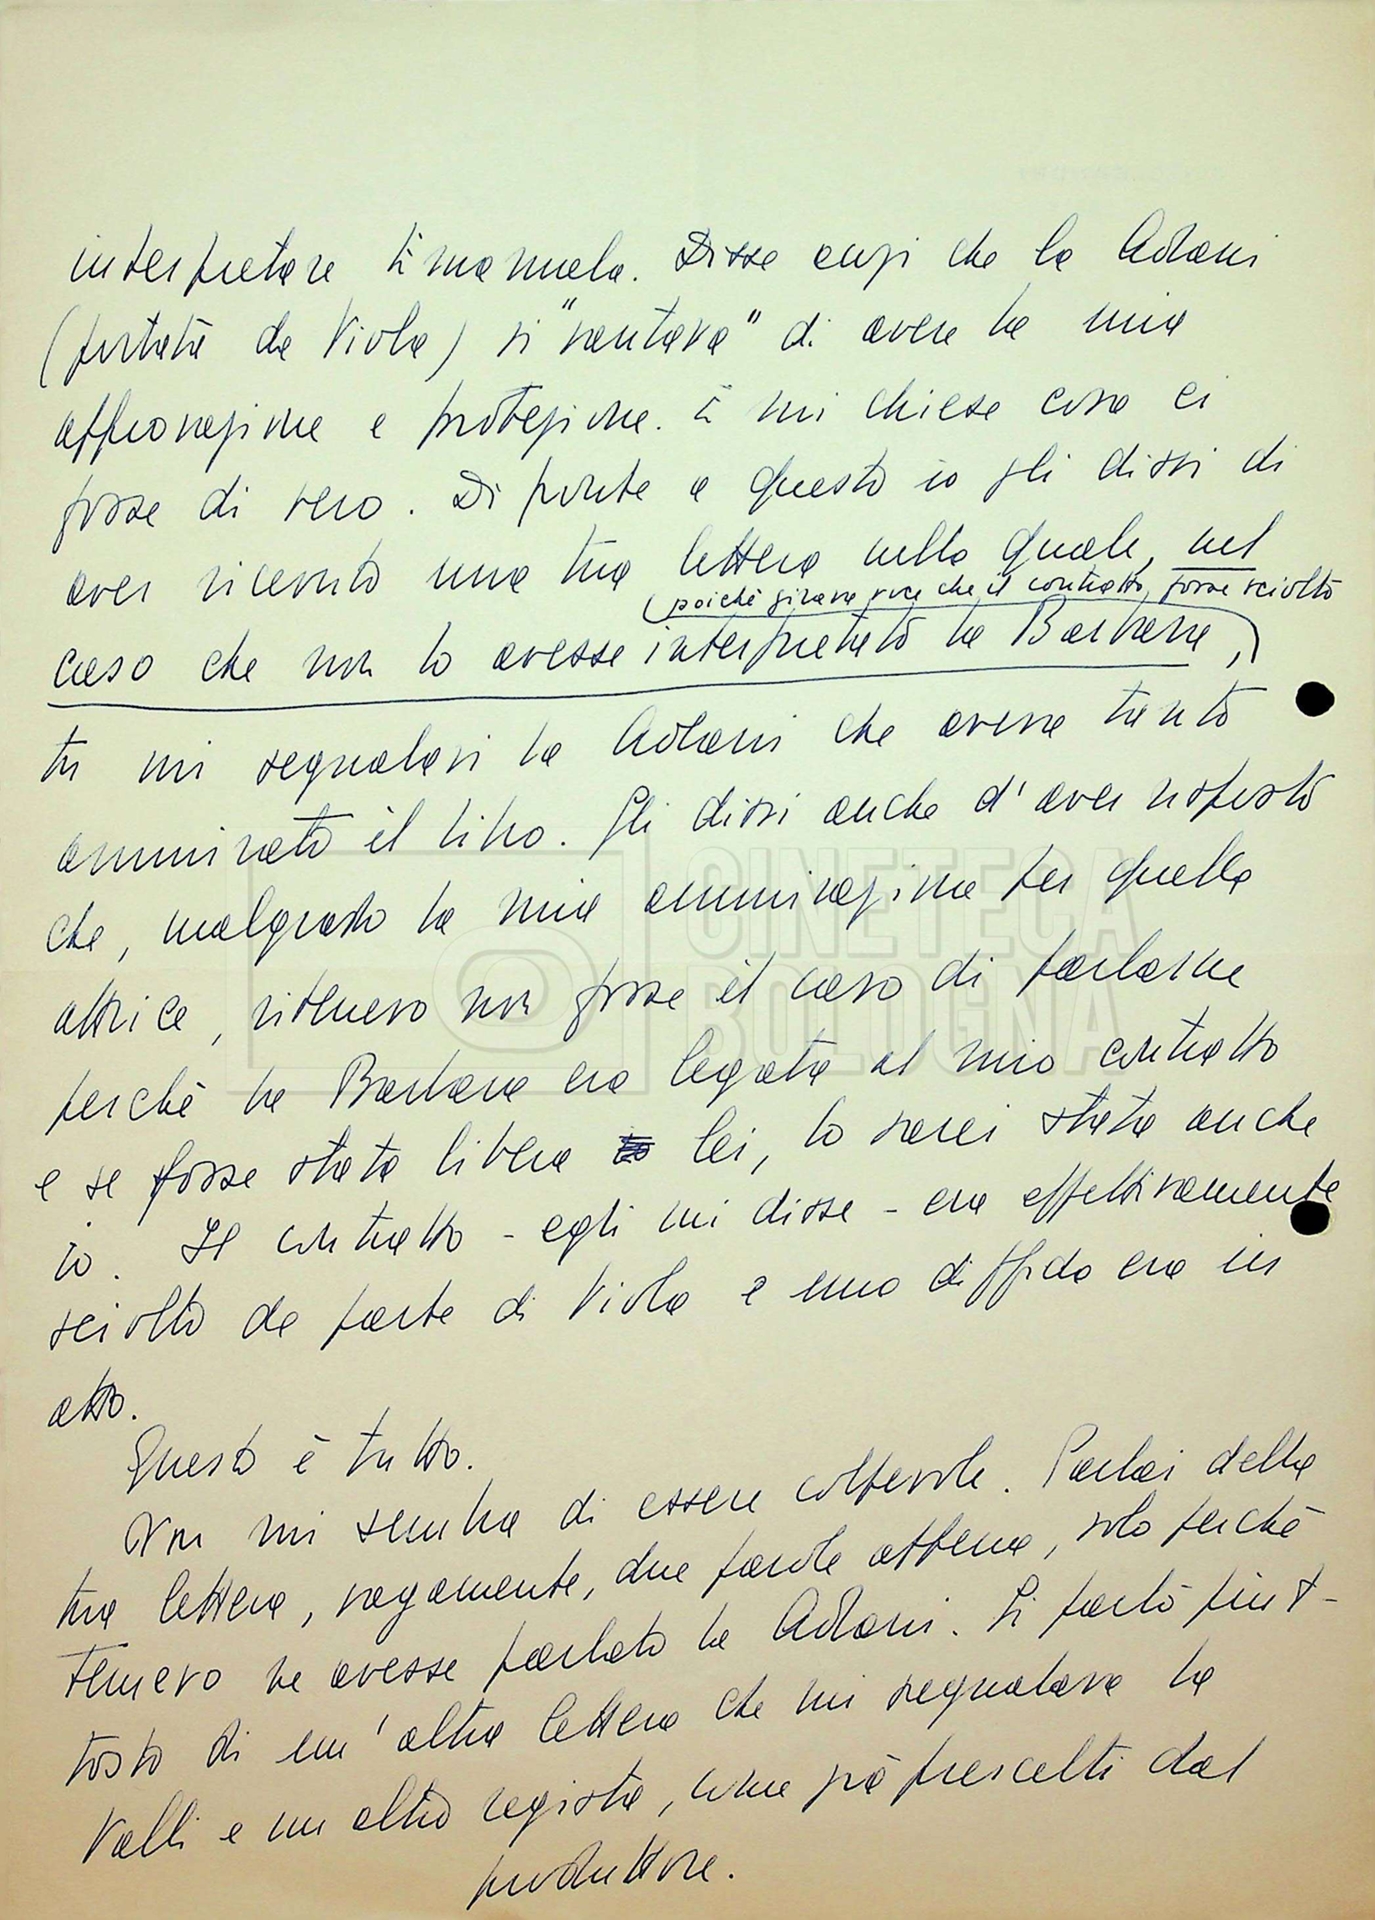 interpretare Emanuela. Disse anzi che la Adani
(portata da Viola) si "vantava" di avere la mia
approvazione e protezione. E mi chiese cosa ci
fosse di vero. Di fronte a questo io gli dissi di
aver ricevuto una tua lettera nella quale, nel
(poichè girava voce che il contratto fosse sciolto
caso che non lo avesse interpretato la Barbara,)
tu mi segnalavi la Adani che aveva tanto
ammirato il libro. Gli dissi anche d'aver risposto
che, malgrado la mia ammirazione per quella
attrice, ritenevo non fosse il caso di parlarne
perchè la Barbara era legata al mio contratto
e se fosse stata libera lei, lo sarei stata anche
io. Il contratto - egli mi disse - era effettivamente
sciolto da parte di Viola e una diffida era in
atto.
Questo è tutto.
Non mi sembra di essere colpevole. Parlai della
tua lettera, vagamente, due parole appena, solo perchè
temevo ne avesse parlato la Adani. Si parlò piut-
tosto di un'altra lettera che mi segnalava la
Valli e un altro regista, come già prescelti dal
produttore.
CINETECA
BOLOGNA